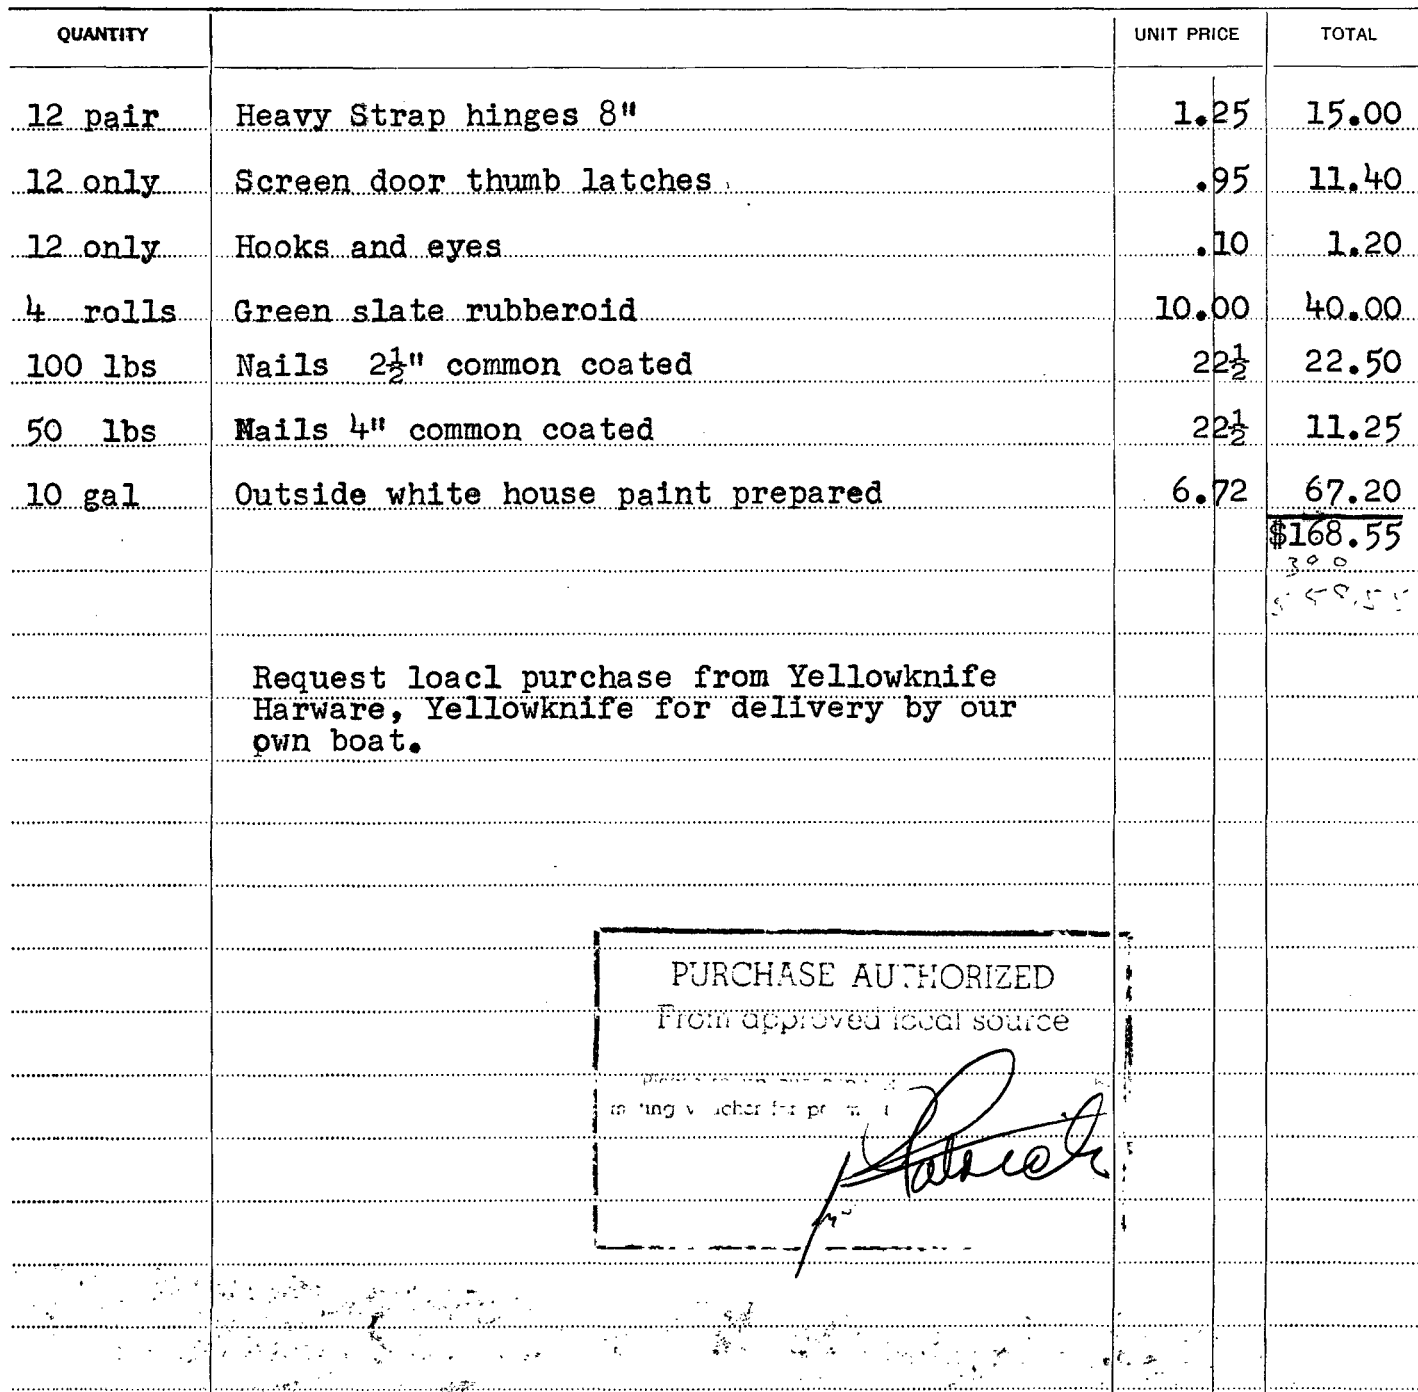 QUANTITY UNIT PRICE TOTAL
12 pair Heavy Strap hinges 8" 1.25 15.00
12 only Screen door thumb latches .95 11.40
12 only Hooks and eyes .10 1.20
4 rolls Green slate rubberoid 10.00 40.00
100 lbs Nails 2½" common coated 22½ 22.50
50 lbs Nails 4" common coated 22½ 11.25
10 gal Outside white house paint prepared 6.72 67.20
$168.55
Request loacl purchase from Yellowknife
Harware, Yellowknife for delivery by our
own boat.
PURCHASE AUTHORIZED
From approved local source